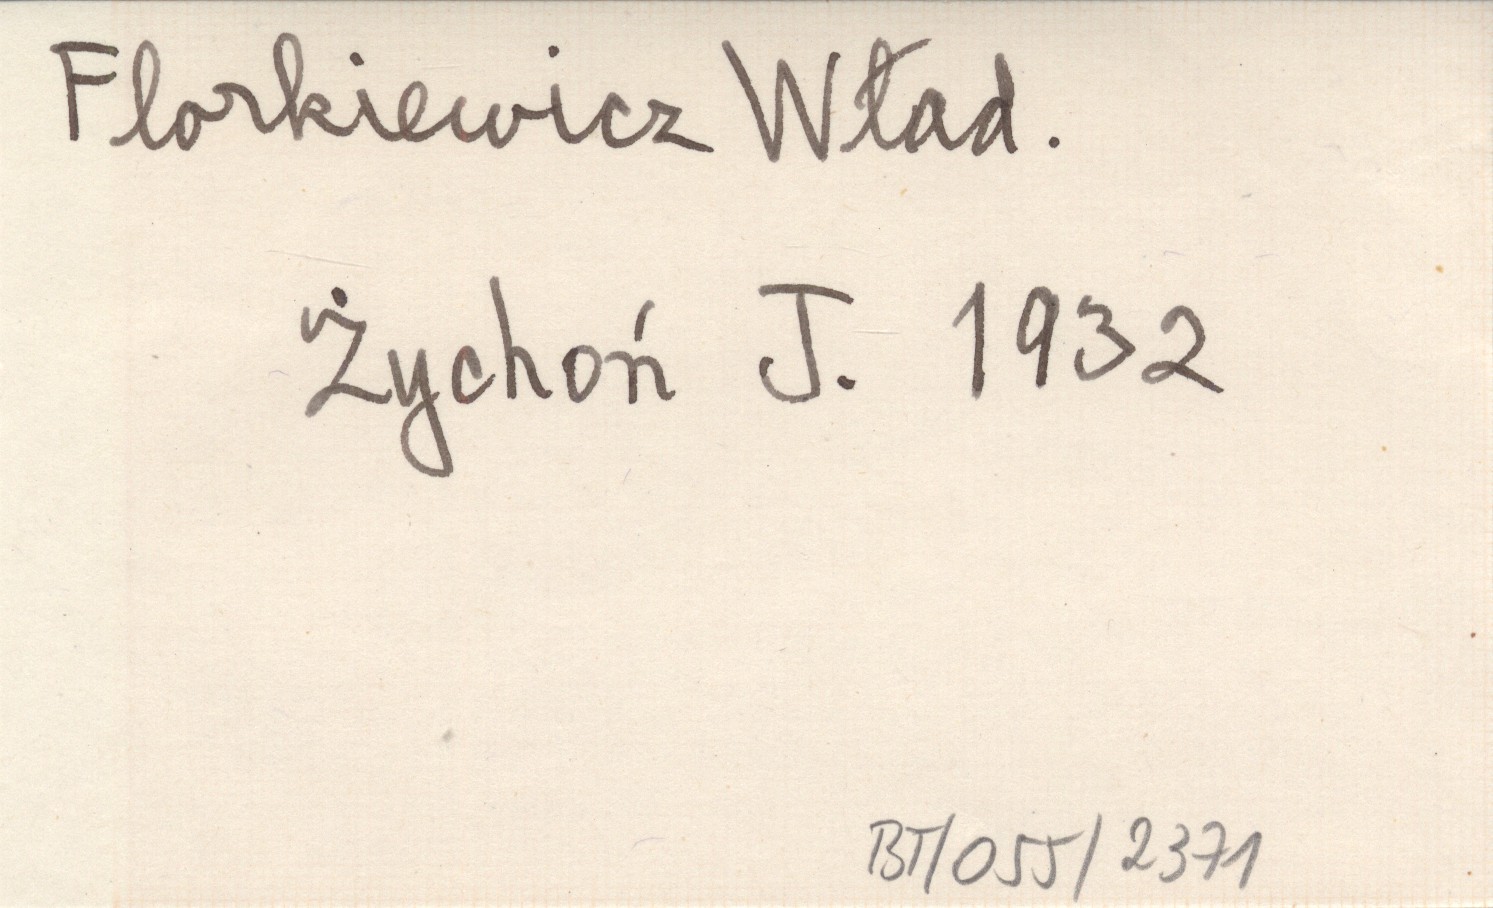 Florkiewicz Wład.
Żychoń J. 1932
BT/055/2371